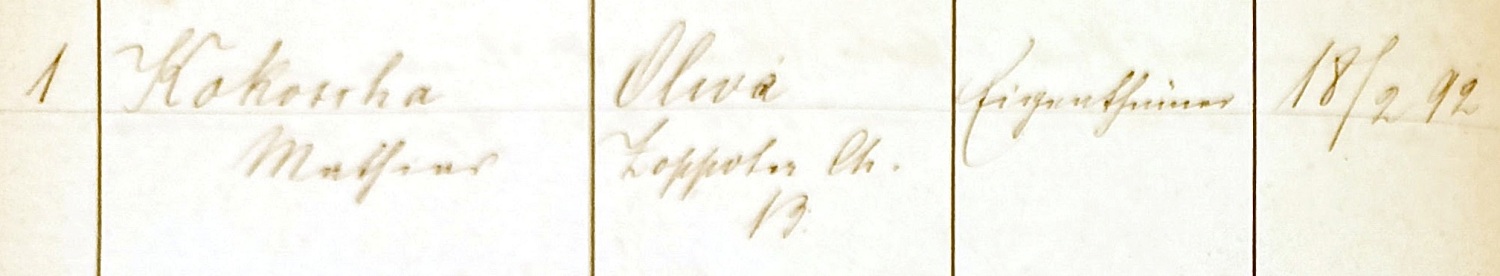 1 Kokoscha Oliva Eigenthümer 18/2 92
Mathias Zoppoter Ch.
13.